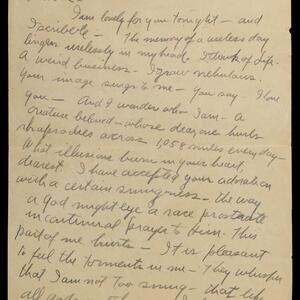 I am lonely for you tonight – and
I scribble – The memory of a useless day
lingers uselessly in my head. I think of Life.
A weird business – I grow nebulous.
Your image sings to me – you say – I love
you – And I wonder who I am – A
creature beloved – whose dear one hurls
rhapsodies across 1058 miles every day –
What illusions burn in your heart,
dearest. I have accepted your adoration
with a certain smugness – the way
a god might eye a race prostrate
in continual prayer to Him. This
part of me hurts – It is pleasant
to feel the torments in me – They whisper
that I am not too smug – that like
all gods